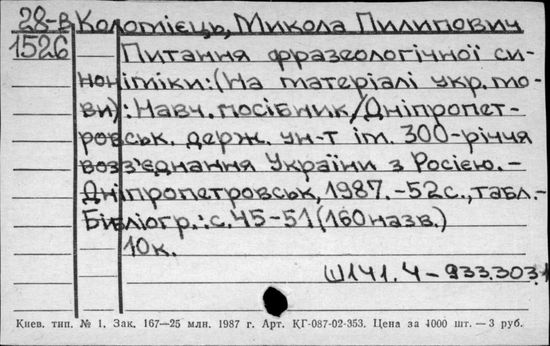 28-В Коломієць, Микола Пилипович
1526 Питання фразеологічної си-
ноніміки: (На матеріалі укр. мо-
ви): Навч. посібник / Дніпропет-
ровськ. держ. ун-т ім. 300-річчя
возз'єднання України з Росією. -
Дніпропетровськ, 1987. - 52с., табл. -
Бібліогр.: с. 45-51 (160 назв.)
10к.
Ш141.4-933.303.1
Киев. тип. № 1. Зак. 167—25 млн. 1987 г. Арт. КГ-087-02-353. Цена за 1000 шт. — 3 руб.